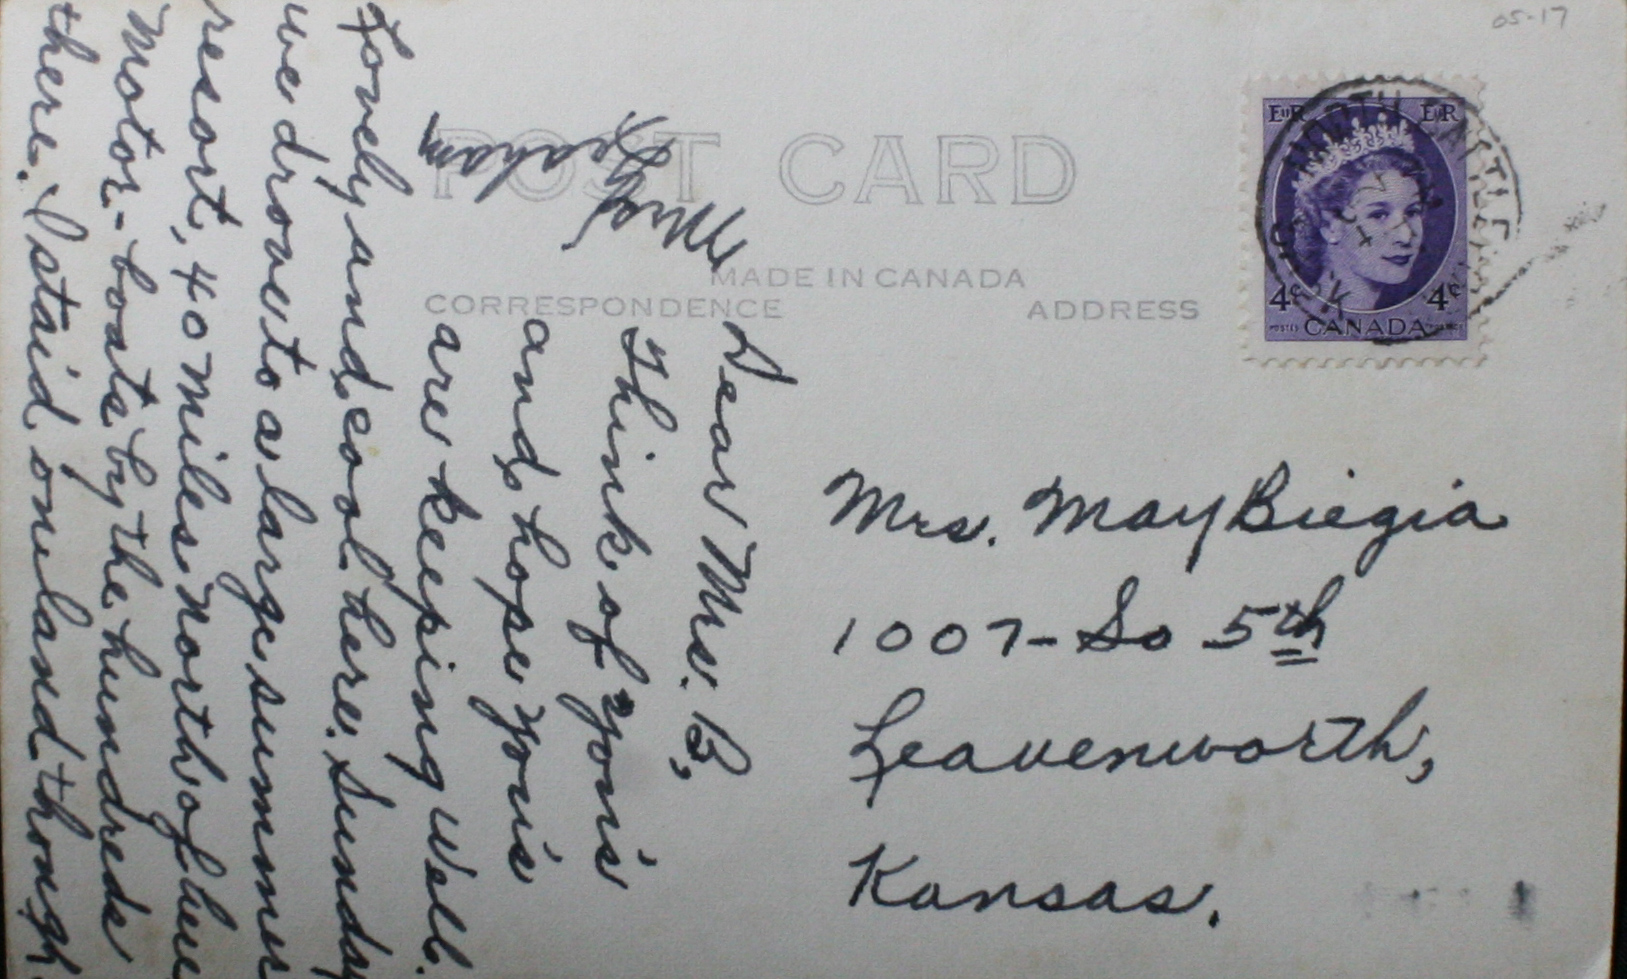 05-17
POST CARD
MADE IN CANADA
CORRESPONDENCE
ADDRESS
EIIR EIIR
4¢ 4¢
POSTES CANADA POSTAGE
NORTH BATTLEFORD
SASK
Mrs. May Biegia
1007- So 5th
Leavenworth,
Kansas.
Dear Mrs. B,
Think of you's
and hope you's
are keeping well.
Lovely and cool here. Sunday
we drove to a large summer
resort, 40 miles north of here
Motor-boats by the hundreds
there. I staid on land though.
Mrs.
Graham